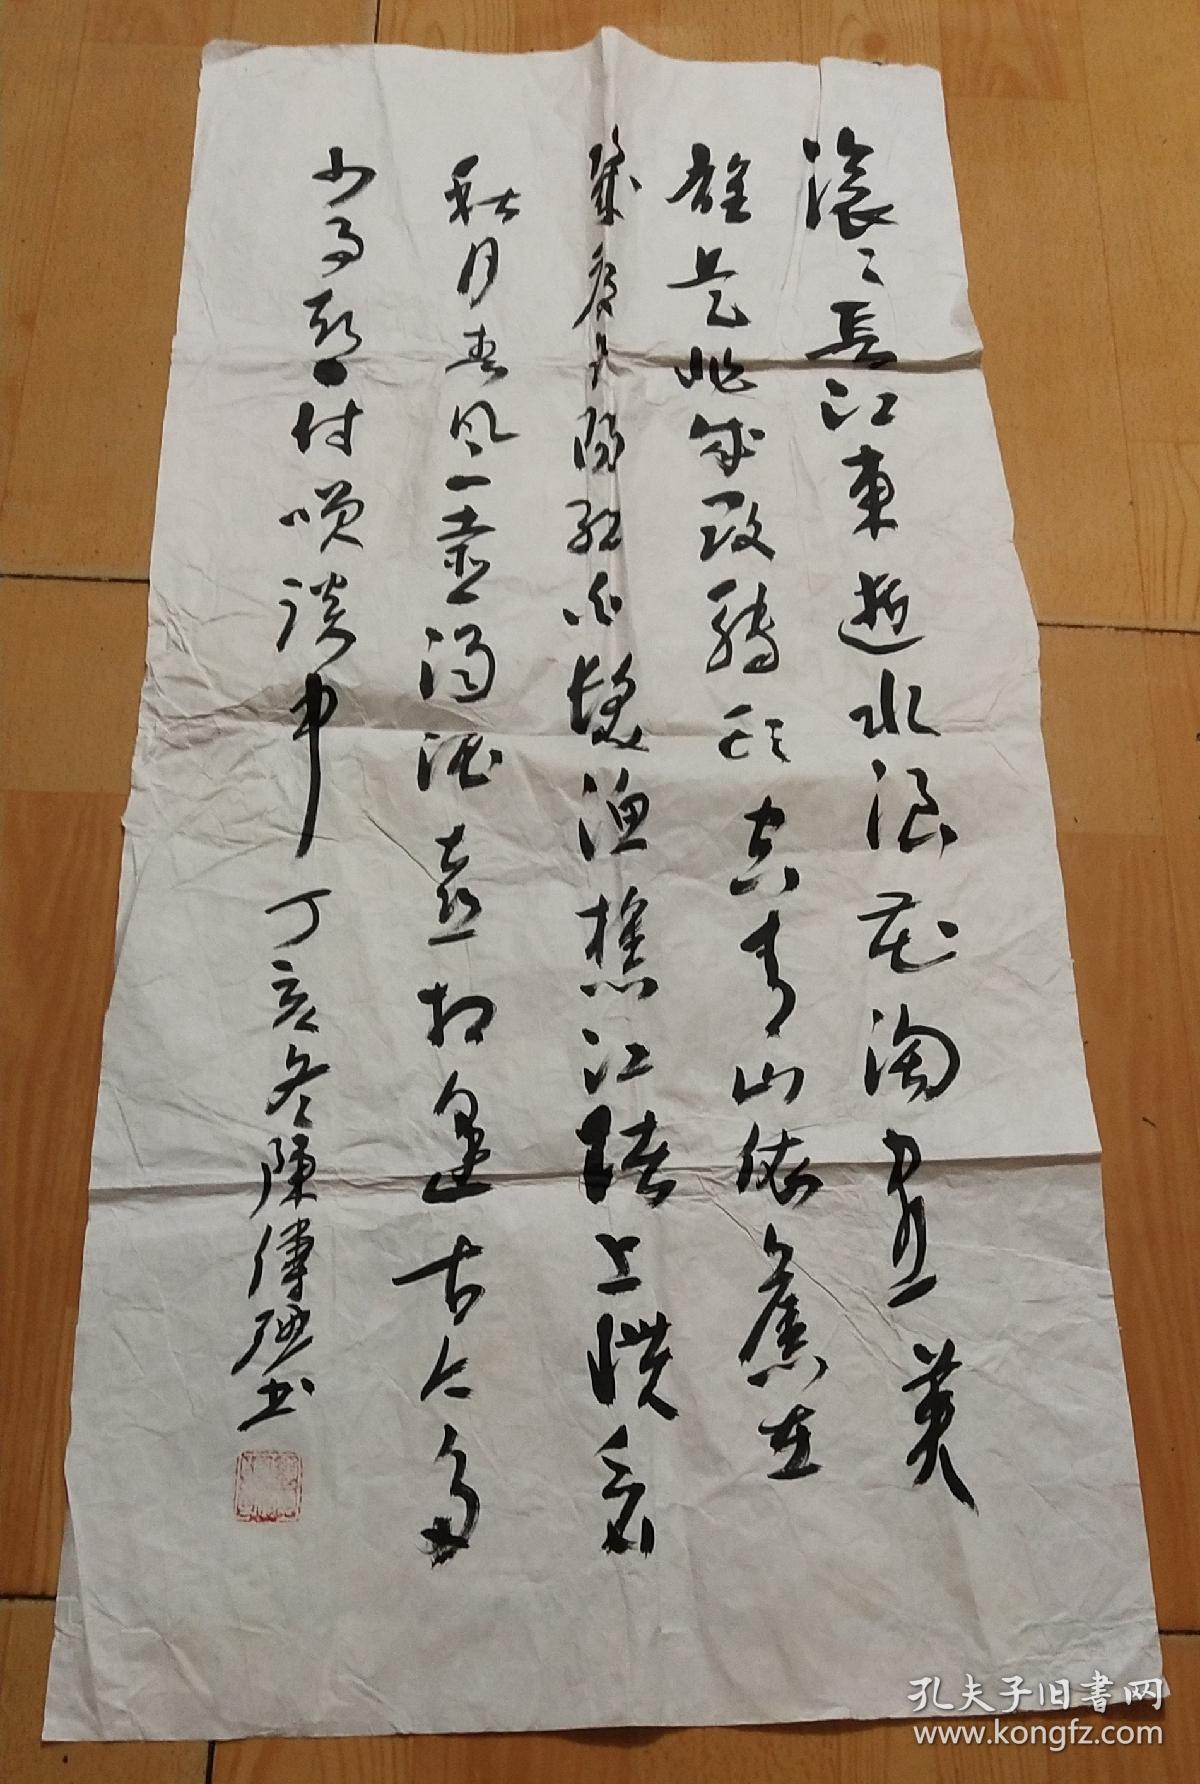 滚々長江東逝水浪花淘尽英
雄是非成敗轉頭空青山依舊在
幾度夕陽紅白髮漁樵江渚上慣看
秋月春風一壺濁酒喜相逢古今多
少事都付笑談中丁亥冬陳傳
書
孔夫子旧書网
www.kongfz.com